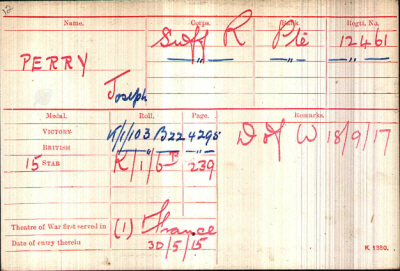 12
Name. Corps. Rank. Regtl. No.
PERRY Suff R Pte 12461
Joseph " " "
Medal. Roll. Page. Remarks.
VICTORY K/1/103 B22 4295 D of W 18/9/17
BRITISH " "
15 STAR K/1/6B 239
Theatre of War first served in (1) France
Date of entry therein 30/5/15
K 1380.